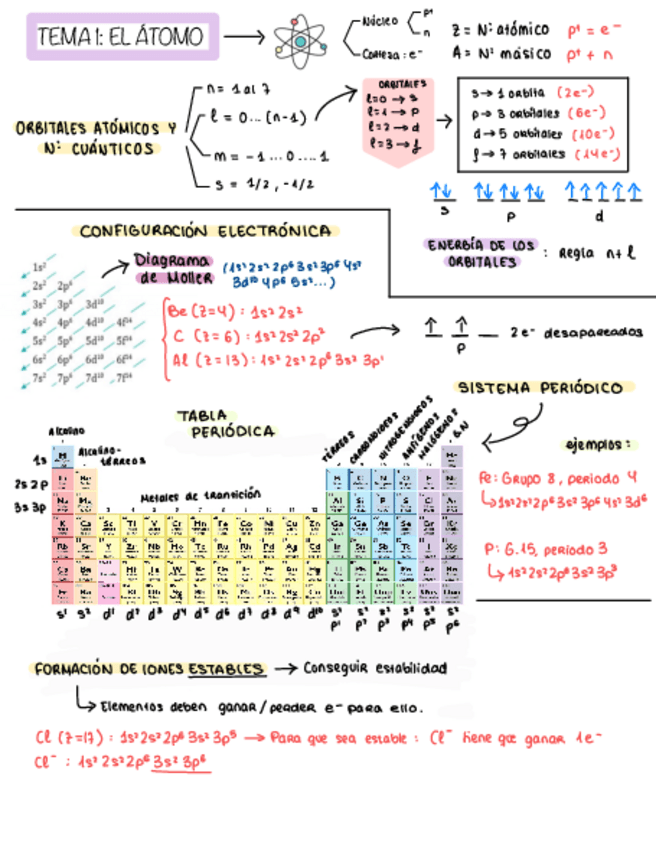 TEMA 1: EL ÁTOMO
Núcleo
p+
n
Corteza: e-
Z = Nº atómico p+ = e-
A = Nº másico p+ + n
ORBITALES ATÓMICOS Y
Nº CUÁNTICOS
n = 1 al 7
l = 0... (n-1)
m = -1 ... 0 .... 1
s = 1/2, -1/2
ORBITALES
l=0 → s
l=1 → p
l=2 → d
l=3 → f
s → 1 orbita (2e-)
p → 3 orbitales (6e-)
d → 5 orbitales (10e-)
f → 7 orbitales (14e-)
s p d
ENERGÍA DE LOS
ORBITALES : Regla n+l
CONFIGURACIÓN ELECTRÓNICA
1s²
2s² 2p⁶
3s² 3p⁶ 3d¹⁰
4s² 4p⁶ 4d¹⁰ 4f¹⁴
5s² 5p⁶ 5d¹⁰ 5f¹⁴
6s² 6p⁶ 6d¹⁰ 6f¹⁴
7s² 7p⁶ 7d¹⁰ 7f¹⁴
Diagrama
de Moller
(1s² 2s² 2p⁶ 3s² 3p⁶ 4s²
3d¹⁰ 4p⁶ 5s²...)
Be (Z=4) : 1s² 2s²
C (Z=6) : 1s² 2s² 2p²
Al (Z=13) : 1s² 2s² 2p⁶ 3s² 3p¹
p
2e- desapareados
SISTEMA PERIÓDICO
TABLA
PERIÓDICA
Alcalino
Alcalino-
térreos
Metales de transición
TÉRREOS
CARBONOIDEOS
NITROGENOIDEOS
ANFÍGENOS
HALÓGENOS
G.N
1s
2s 2p
3s 3p
H He
Al Si P S Cl Ar
K Ca Sc Ti V Cr Mn Fe Co Ni Cu Zn Ga Ge As Se Br Kr
s¹ s² d¹ d² d³ d⁴ d⁵ d⁶ d⁷ d⁸ d⁹ d¹⁰ s² s² s² s² s² s²
p¹ p² p³ p⁴ p⁵ p⁶
ejemplos:
Fe: Grupo 8, periodo 4
1s² 2s² 2p⁶ 3s² 3p⁶ 4s² 3d⁶
P: G.15, periodo 3
1s² 2s² 2p⁶ 3s² 3p³
FORMACIÓN DE IONES ESTABLES → Conseguir estabilidad
Elementos deben ganar/perder e- para ello.
Cl (Z=17) : 1s² 2s² 2p⁶ 3s² 3p⁵ → Para que sea estable : Cl⁻ tiene que ganar 1e-
Cl⁻ : 1s² 2s² 2p⁶ 3s² 3p⁶